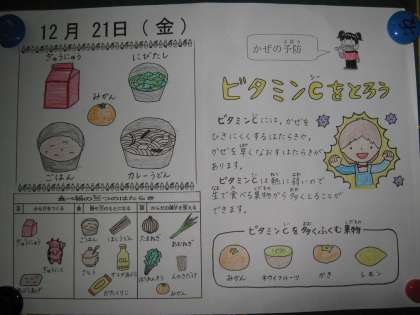 12月 21日（金）
ぎゅうにゅう
にびたし
みかん
ごはん
カレーうどん
ぎゅうにゅう
ごはん
ほしうどん
さとう
かたくりこ
たまねぎ
みかん
かぜの予防
ビタミンCをとろう
ビタミンCには、かぜを
ひきにくくするはたらきや、
かぜを早くなおすはたらきが
あります。
ビタミンCは熱に弱いので
生で食べる果物から多くとることが
できます。
ビタミンCを多くふくむ果物
みかん
キウイフルーツ
かき
レモン